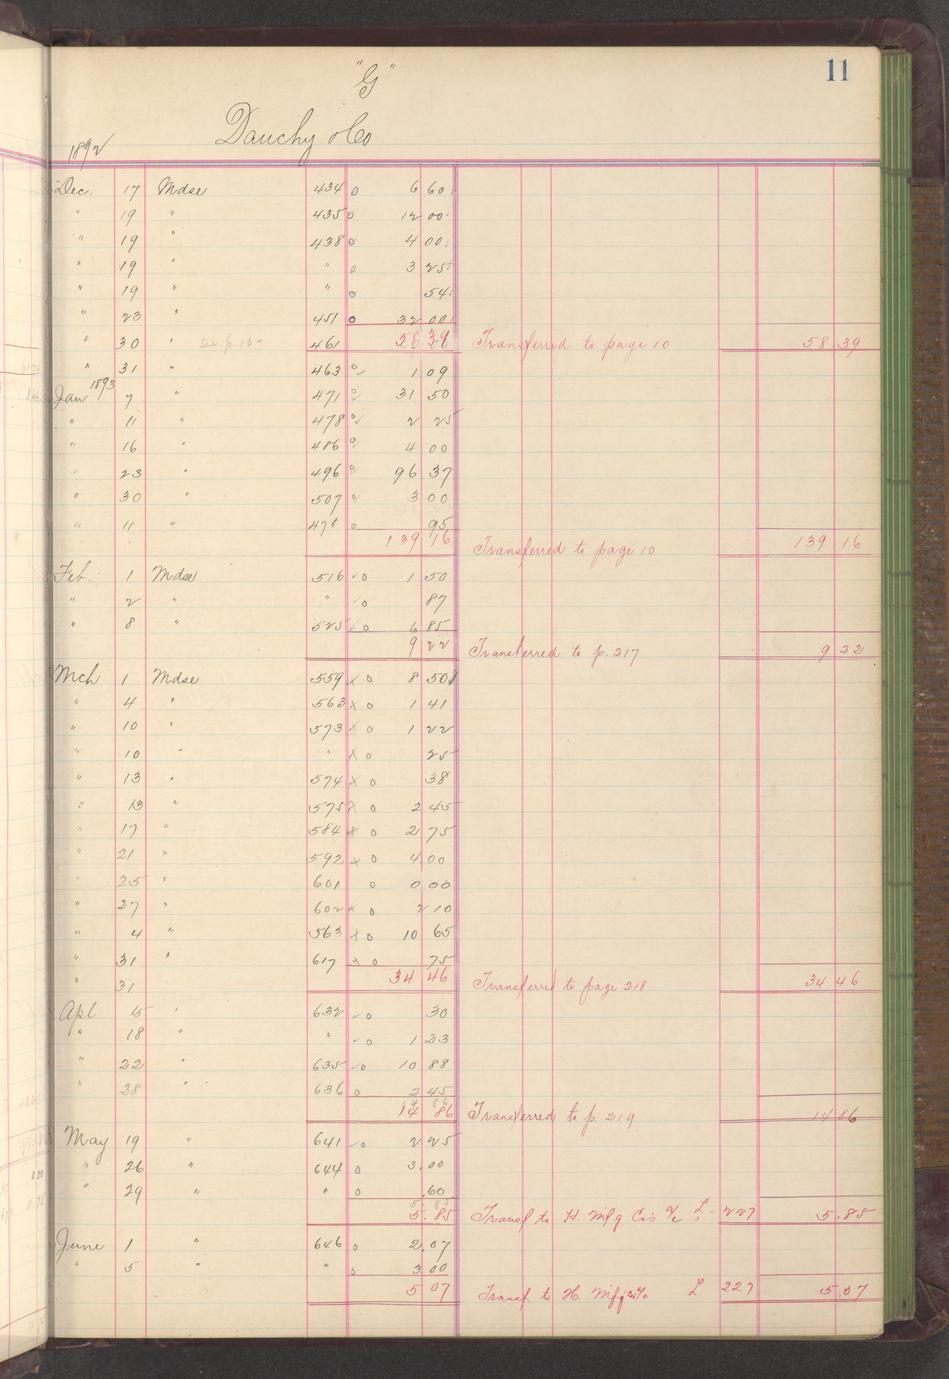 11
"G"
Dauchy & Co
1892
Dec. 17 Mdse 434 o 6 60
" 19 " 435 o 12 00
" 19 " 438 o 4 00
" 19 " " o 3 25
" 19 " " o 54
" 23 " 451 o 32 00
" 30 " see p. 10 461 58 39 Transferred to page 10 58 39
" 31 " 463 o 1 09
1893
Jan 7 " 471 o 31 50
" 11 " 478 o 2 25
" 16 " 486 o 4 00
" 23 " 496 o 96 37
" 30 " 507 o 3 00
" 11 " 478 o 95
139 16 Transferred to page 10 139 16
Feb. 1 Mdse 516 o 1 50
" 2 " " o 87
" 8 " 525 o 6 85
9 22 Transferred to p. 217 9 22
Mch 1 Mdse 559 x o 8 50
" 4 " 563 x o 1 41
" 10 " 573 x o 1 22
" 10 " " x o 25
" 13 " 574 x o 38
" 13 " 575 x o 2 45
" 17 " 584 x o 2 75
" 21 " 592 x o 4 00
" 25 " 601 o 0 00
" 27 " 602 x o 2 10
" 4 " 563 x o 10 65
" 31 " 617 x o 75
" 31 34 46 Transferred to page 218 34 46
Apl 15 " 632 o 30
" 18 " " o 1 23
" 22 " 635 o 10 88
" 28 " 636 o 2 45
14 86 Transferred to p. 219 14 86
May 19 " 641 o 2 25
" 26 " 644 o 3.00
" 29 " " o .60
5.85 Transf to H. Mfg Co's a/c L. 227 5.85
June 1 " 646 o 2.07
" 5 " " o 3 00
5 07 Transf. to H. Mfg Co's L. 227 5.07